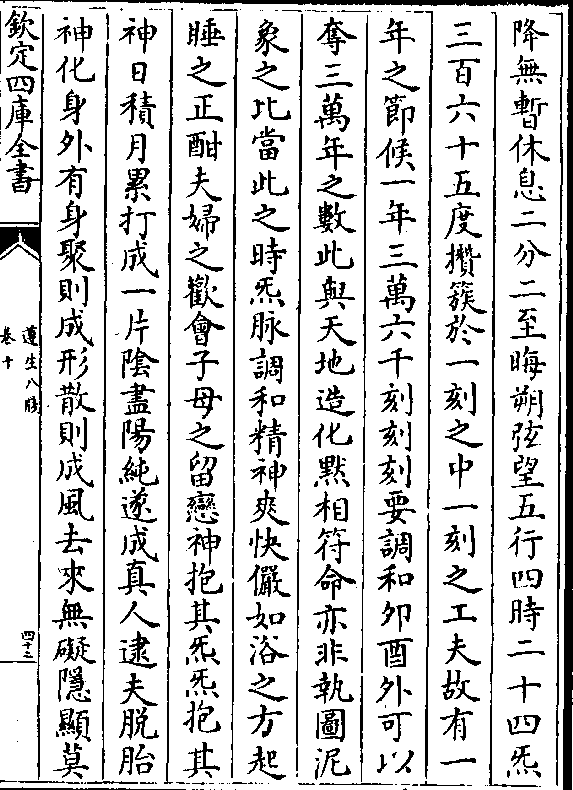 降無暫休息二分二至晦朔弦望五行四時二十四炁
三百六十五度攢簇於一刻之中一刻之工夫故有一
年之節候一年三萬六千刻刻刻要調和卯酉外可以
奪三萬年之數此與天地造化默相符命亦非執圖泥
象之比當此之時炁脉調和精神爽快儼如浴之方起
睡之正酣夫婦之歡會子母之留戀神抱其炁炁抱其
神日積月累打成一片陰盡陽純遂成真人逮夫脱胎
神化身外有身聚則成形散則成風去來無礙隱顯莫
欽定四庫全書
遵生八牋
卷十
四十二